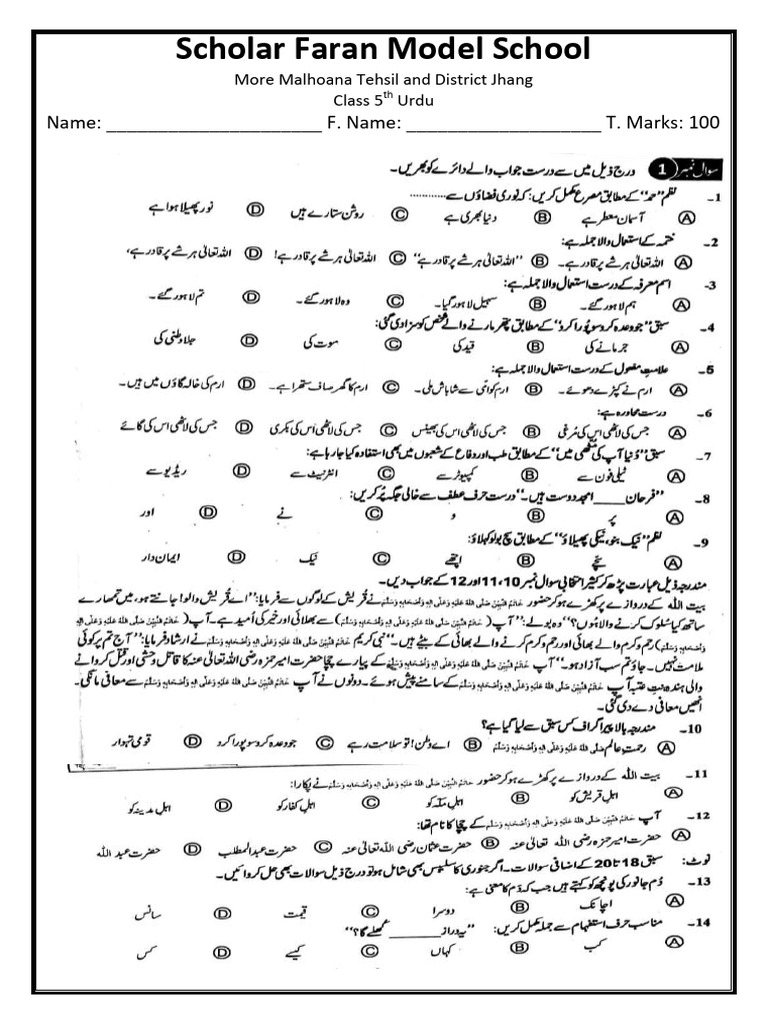 Scholar Faran Model School
More Malhoana Tehsil and District Jhang
Class 5th Urdu
Name: ______________________ F. Name: ____________________ T. Marks: 100
سوال نمبر 1 درج ذیل میں سے درست جواب والے دائرے کو بھریں۔
1۔ نظم ”حمد“ کے مطابق مصرع مکمل کریں: کہ نوری فضاؤں سے ............
A آسمان معطر ہے B دنیا بھری ہے C روشن ستارے ہیں D نور پھیلا ہوا ہے
2۔ ختمہ کے استعمال والا جملہ ہے:
A اللہ تعالیٰ ہر شے پر قادر ہے۔ B ”اللہ تعالیٰ ہر شے پر قادر ہے“ C اللہ تعالیٰ ہر شے پر قادر ہے! D اللہ تعالیٰ ہر شے پر قادر ہے،
3۔ اسم معرفہ کے درست استعمال والا جملہ ہے:
A ہم لاہور گئے۔ B سہیل لاہور گیا۔ C وہ لاہور گئے۔ D تم لاہور گئے۔
4۔ سبق ”جو وعدہ کرو سو پُورا کرو“ کے مطابق پتھر مارنے والے شخص کو سزا دی گئی:
A جرمانے کی B قید کی C موت کی D جلا وطنی کی
5۔ علامتِ مفعول کے درست استعمال والا جملہ ہے:
A ارم نے کپڑے دھوئے۔ B ارم کو اُمی سے شاباش ملی۔ C ارم کا گھر صاف ستھرا ہے۔ D ارم کی خالہ گاؤں میں ہیں۔
6۔ درست محاورہ ہے:
A جس کی لاٹھی اُس کی مُرغی B جس کی لاٹھی اس کی بھینس C جس کی لاٹھی اُس کی بکری D جس کی لاٹھی اس کی گائے
7۔ سبق ”دُنیا آپ کی مُٹھی میں“ کے مطابق طب اور دفاع کے شعبوں میں بھی استفادہ کیا جا رہا ہے:
A ٹیلی فون سے B کمپیوٹر سے C انٹرنیٹ سے D ریڈیو سے
8۔ ”فرحان ____ امجد دوست ہیں۔“ درست حرف عطف سے خالی جگہ پُر کریں:
A پر B و C نے D اور
9۔ نظم ”نیک بنو، نیکی پھیلاؤ“ کے مطابق سچ بولو کہلاؤ:
A سچے B اچھے C نیک D ایمان دار
مندرجہ ذیل عبارت پڑھ کر کثیر انتخابی سوال نمبر 10، 11 اور 12 کے جواب دیں۔
بیت اللہ کے دروازے پر کھڑے ہو کر حضور خَاتَمُ النَّبِیّٖنَ صَلَّی اللہُ عَلَیْہِ وَعَلٰی اٰلِہٖ وَاَصْحَابِہٖ وَسَلَّمَ نے قریش کے لوگوں سے فرمایا: ”اے قُریش والو! جانتے ہو، میں تمھارے
ساتھ کیا سلوک کرنے والا ہُوں؟“ وہ بولے: ”آپ (خَاتَمُ النَّبِیّٖنَ صَلَّی اللہُ عَلَیْہِ وَعَلٰی اٰلِہٖ وَاَصْحَابِہٖ وَسَلَّمَ) سے بھلائی اور خیر کی اُمید ہے۔ آپ (خَاتَمُ النَّبِیّٖنَ صَلَّی اللہُ عَلَیْہِ وَعَلٰی اٰلِہٖ وَاَصْحَابِہٖ
وَسَلَّمَ) رحم و کرم والے بھائی اور رحم و کرم کرنے والے بھائی کے بیٹے ہیں۔“ نبی کریم خَاتَمُ النَّبِیّٖنَ صَلَّی اللہُ عَلَیْہِ وَعَلٰی اٰلِہٖ وَاَصْحَابِہٖ وَسَلَّمَ نے ارشاد فرمایا: ”آج تم پر کوئی
ملامت نہیں۔ جاؤ تم سب آزاد ہو۔“ آپ خَاتَمُ النَّبِیّٖنَ صَلَّی اللہُ عَلَیْہِ وَعَلٰی اٰلِہٖ وَاَصْحَابِہٖ وَسَلَّمَ کے پیارے چچا حضرت امیر حمزہ رضی اللہ تعالیٰ عنہ کا قاتل وحشی اور قتل کروانے
والی ہندہ بنتِ عتبہ آپ خَاتَمُ النَّبِیّٖنَ صَلَّی اللہُ عَلَیْہِ وَعَلٰی اٰلِہٖ وَاَصْحَابِہٖ وَسَلَّمَ کے سامنے پیش ہوئے۔ دونوں نے آپ خَاتَمُ النَّبِیّٖنَ صَلَّی اللہُ عَلَیْہِ وَعَلٰی اٰلِہٖ وَاَصْحَابِہٖ وَسَلَّمَ سے معافی مانگی۔
انھیں معافی دے دی گئی۔
10۔ مندرجہ بالا پیراگراف کس سبق سے لیا گیا ہے؟
A رحمتِ عالم صَلَّی اللہُ عَلَیْہِ وَعَلٰی اٰلِہٖ وَاَصْحَابِہٖ وَسَلَّمَ B اے وطن! تو سلامت رہے C جو وعدہ کرو سو پورا کرو D قومی تہوار
11۔ بیت اللہ کے دروازے پر کھڑے ہو کر حضور خَاتَمُ النَّبِیّٖنَ صَلَّی اللہُ عَلَیْہِ وَعَلٰی اٰلِہٖ وَاَصْحَابِہٖ وَسَلَّمَ نے پکارا:
A اہلِ قریش کو B اہلِ مکّہ کو C اہلِ کفار کو D اہلِ مدینہ کو
12۔ آپ خَاتَمُ النَّبِیّٖنَ صَلَّی اللہُ عَلَیْہِ وَعَلٰی اٰلِہٖ وَاَصْحَابِہٖ وَسَلَّمَ کے چچا کا نام تھا:
A حضرت امیر حمزہ رضی اللہ تعالیٰ عنہ B حضرت عثمان رضی اللہ تعالیٰ عنہ C حضرت عبدالمطلب D حضرت عبد اللہ
نوٹ: سبق 18 تا 20 کے اضافی سوالات۔ اگر جنوری کا سلیبس بھی شامل ہو تو درج ذیل سوالات بھی حل کروائیں۔
13۔ دُم جانور کی پونچھ کو کہتے ہیں جب کہ دَم کا معنی ہے:
A اچانک B دوسرا C قیمت D سانس
14۔ مناسب حرف استفہام سے جملہ مکمل کریں: ”یہ دراز ______ کھلے گا؟“
A کب B کہاں C کیسے D کس